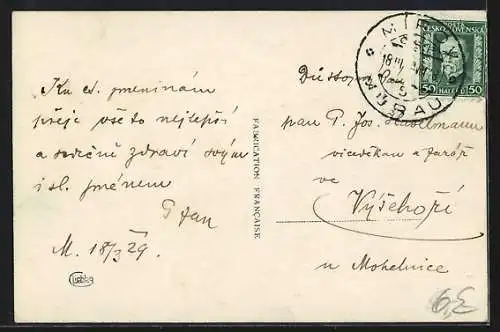 Ku sv. jmeninám
přeje všeho nejlepší
a srdečně zdraví svým
i sl. jménem
M. 18/3 29.
FABRICATION FRANÇAISE
MÍROV
MÜRAU
POŠTA
ČESKOSLOVENSKÁ
50 HALÉŘŮ 50
Důstojný
pan P. Jos.
viceděkan a farář
ve
Výšehoří
u Mohelnice
6,£